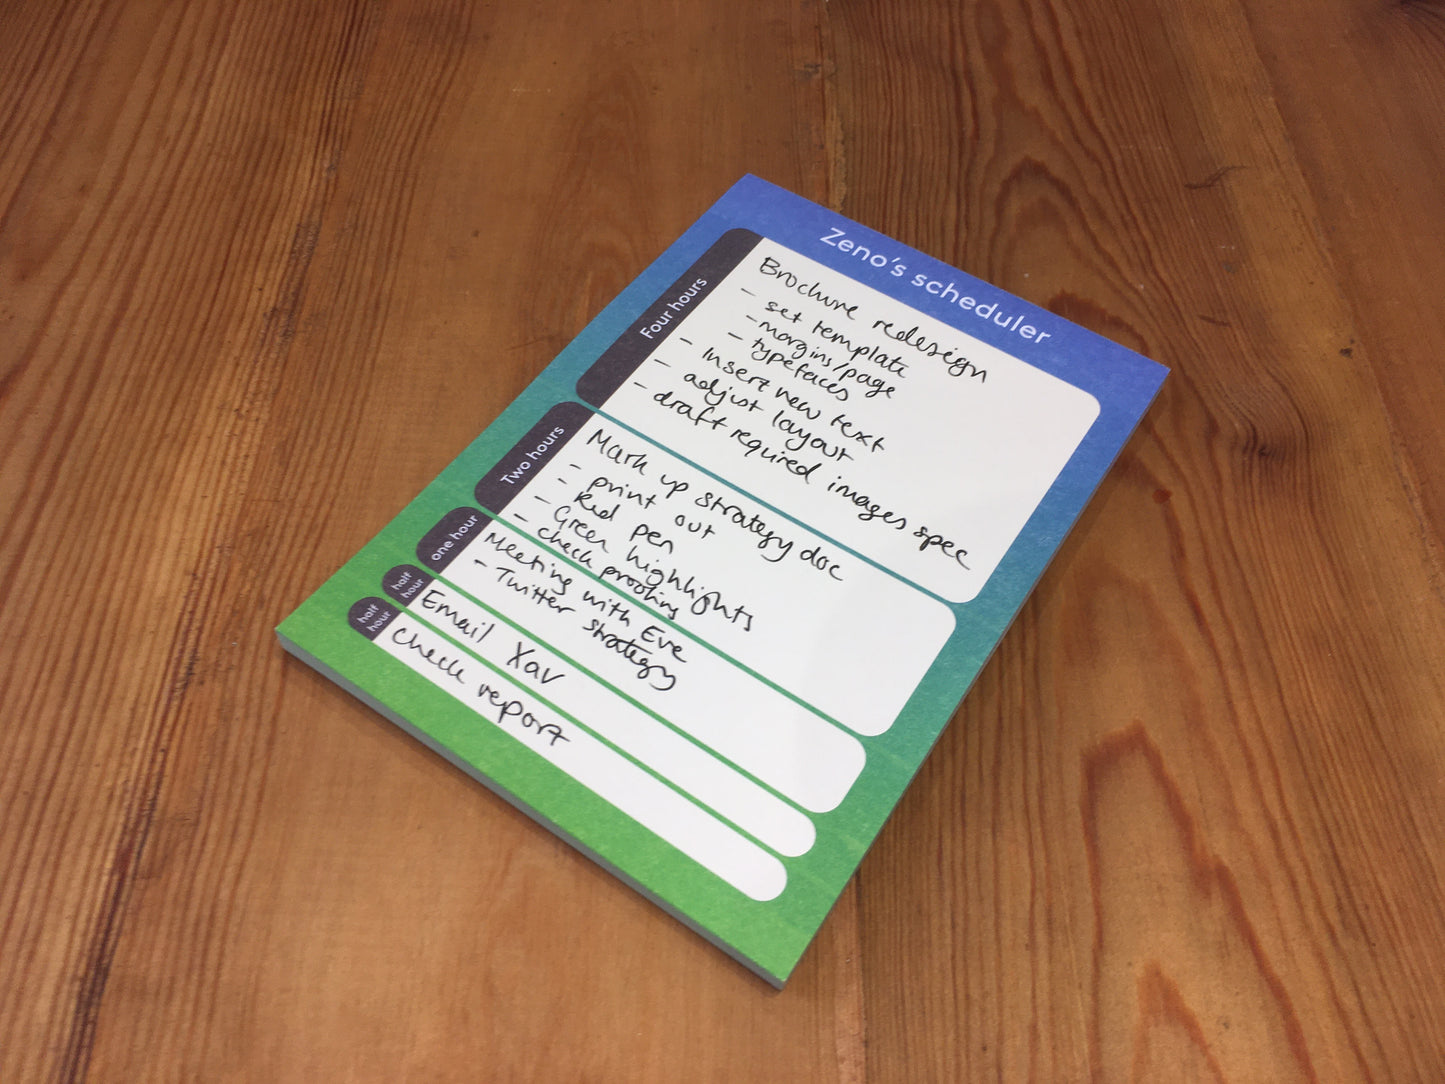 Zeno's scheduler
Four hours
Brochure redesign
- set template
- margins/page
- typefaces
- Insert new text
- adjust layout
- draft required images spec
Two hours
Mark up strategy doc
- print out
- Red pen
- Green highlights
- check proofing
one hour
Meeting with Eve
- Twitter strategy
half
hour
Email Xav
half
hour
Check report